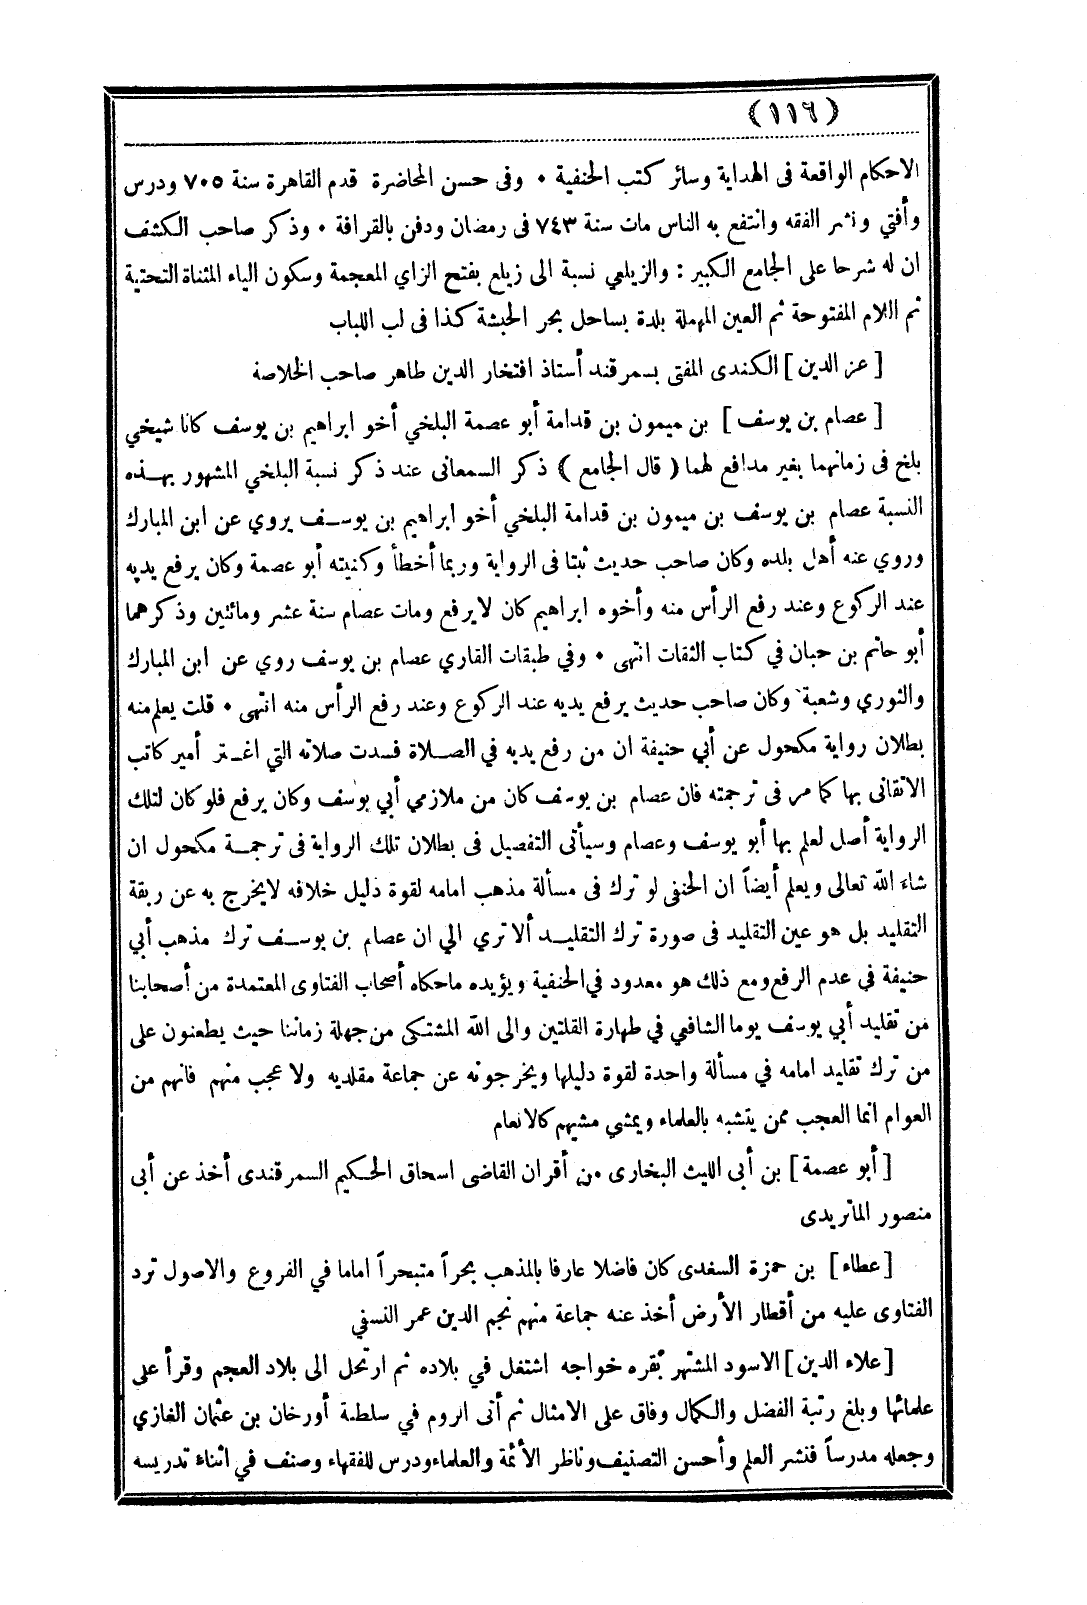 (١١٦)
الاحكام الواقعة فى الهداية وسائر كتب الحنفية ٠ وفى حسن المحاضرة قدم القاهرة سنة ٧٠٥ ودرس
وأفتي ونشر الفقه وانتفع به الناس مات سنة ٧٤٣ فى رمضان ودفن بالقرافة ٠ وذكر صاحب الكشف
ان له شرحا على الجامع الكبير : والزيلعي نسبة الى زيلع بفتح الزاي المعجمة وسكون الياء المثناة التحتية
ثم اللام المفتوحة ثم العين المهملة بلدة بساحل بحر الحبشة كذا فى لب اللباب
[ عز الدين ] الكندى المفتى بسمرقند أستاذ افتخار الدين طاهر صاحب الخلاصة
[ عصام بن يوسف ] بن ميمون بن قدامة أبو عصمة البلخي أخو ابراهيم بن يوسف كانا شيخي
بلخ فى زمانهما بغير مدافع لهما ( قال الجامع ) ذكر السمعانى عند ذكر نسبة البلخي المشهور بهذه
النسبة عصام بن يوسف بن ميمون بن قدامة البلخي أخو ابراهيم بن يوسف يروي عن ابن المبارك
وروي عنه أهل بلده وكان صاحب حديث ثبتا فى الرواية وربما أخطأ وكنيته أبو عصمة وكان يرفع يديه
عند الركوع وعند رفع الرأس منه وأخوه ابراهيم كان لا يرفع ومات عصام سنة عشر ومائتين وذكرهما
أبو حاتم بن حبان في كتاب الثقات انتهى ٠ وفي طبقات القاري عصام بن يوسف روي عن ابن المبارك
والثوري وشعبة وكان صاحب حديث يرفع يديه عند الركوع وعند رفع الرأس منه انتهى ٠ قلت يعلم منه
بطلان رواية مكحول عن أبي حنيفة ان من رفع يديه في الصلاة فسدت صلاته التي اغتر أمير كاتب
الاتقانى بها كما مر فى ترجمته فان عصام بن يوسف كان من ملازمي أبي يوسف وكان يرفع فلو كان لتلك
الرواية أصل لعلم بها أبو يوسف وعصام وسيأتى التفصيل فى بطلان تلك الرواية فى ترجمة مكحول ان
شاء الله تعالى ويعلم أيضاً ان الحنفى لو ترك فى مسألة مذهب امامه لقوة دليل خلافه لا يخرج به عن ربقة
التقليد بل هو عين التقليد فى صورة ترك التقليد ألا تري الي ان عصام بن يوسف ترك مذهب أبي
حنيفة في عدم الرفع ومع ذلك هو معدود في الحنفية ويؤيده ماحكاه أصحاب الفتاوى المعتمدة من أصحابنا
من تقليد أبي يوسف يوما الشافعي في طهارة القلتين والى الله المشتكى من جهلة زماننا حيث يطعنون على
من ترك تقليد امامه في مسألة واحدة لقوة دليلها ويخرجونه عن جماعة مقلديه ولا عجب منهم فانهم من
العوام انما العجب ممن يتشبه بالعلماء ويمشي مشيهم كالانعام
[ أبو عصمة ] بن أبى الليث البخارى من أقران القاضى اسحاق الحكيم السمرقندى أخذ عن أبى
منصور الماتريدى
[ عطاء ] بن حمزة السغدى كان فاضلا عارفا بالمذهب بحراً متبحراً اماما في الفروع والاصول ترد
الفتاوى عليه من أقطار الأرض أخذ عنه جماعة منهم نجم الدين عمر النسفي
[ علاء الدين ] الاسود المشتهر بقره خواجه اشتغل في بلاده ثم ارتحل الى بلاد العجم وقرأ على
علمائها وبلغ رتبة الفضل والكمال وفاق على الامثال ثم أتى الروم في سلطنة أورخان بن عثمان الغازي
وجعله مدرساً فنشر العلم وأحسن التصنيف وناظر الأئمة والعلماء ودرس للفقهاء وصنف في اثناء تدريسه